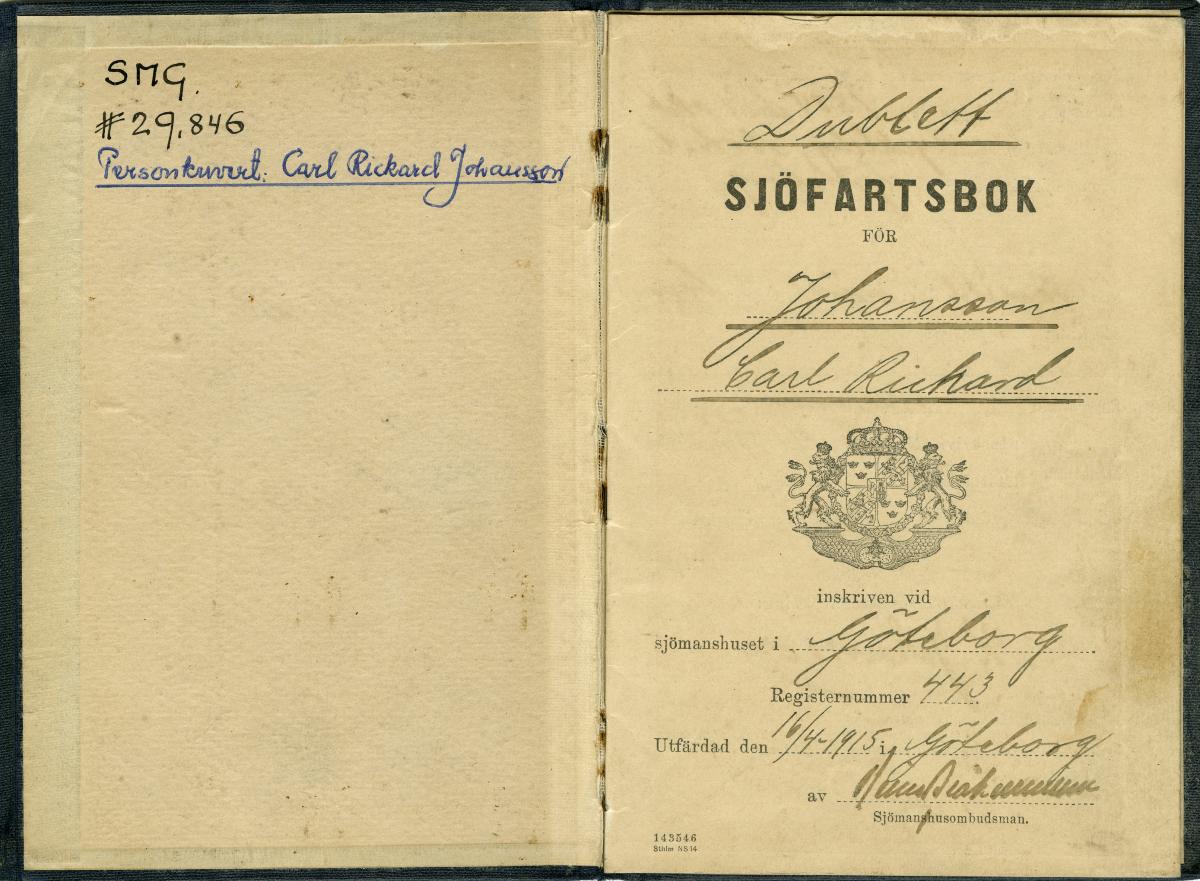 SMG.
#29,846
Personkuvert: Carl Rickard Johansson
Dublett
SJÖFARTSBOK
FÖR
Johansson
Carl Rickard
inskriven vid
sjömanshuset i Göteborg
Registernummer 443
Utfärdad den 16/4-1915 i Göteborg
av
Sjömanshusombudsman.
143546
Sthlm NS14